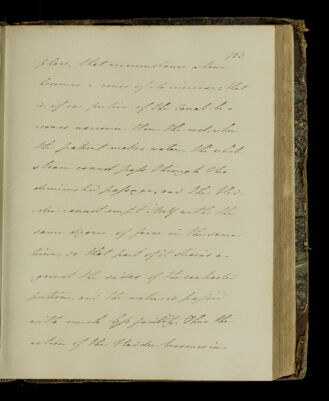 103
place, that circumstance alone
becomes a cause of its increase; that
is, if a portion of the canal be-
comes narrower than the rest, when
the patient makes water, the whole
stream cannot pass through this
diminished passage, and the blad-
der cannot empt itself with the
same degree of force in the same
time, so that part of it strains a-
gainst the sides of the contracted
portion, and the water is passed
with much less facility. Thus the
action of the bladder becomes in-